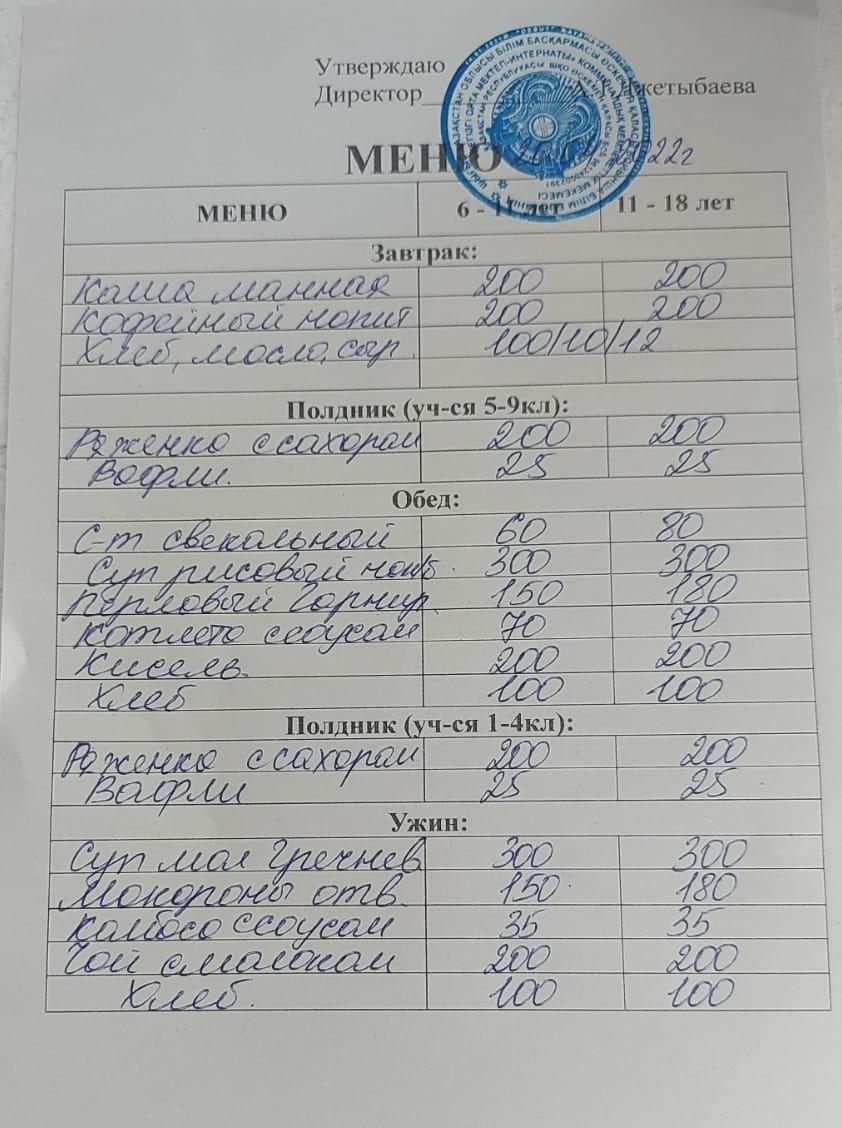 Утверждаю
Директор
МЕНЮ 22г
МЕНЮ 6 - 11 лет 11 - 18 лет
Завтрак:
Каша манная 200 200
Кофейный напит 200 200
Хлеб, масло, сыр 100/10/12
Полдник (уч-ся 5-9кл):
Ряженка с сахаром 200 200
Вафли. 25 25
Обед:
С-т свекольный 60 80
Суп рисовый 300 300
Перловый гарнир 150 180
Котлета с соусом 70 70
Кисель 200 200
Хлеб 100 100
Полдник (уч-ся 1-4кл):
Ряженка с сахаром 200 200
Вафли 25 25
Ужин:
Суп мол гречнев 300 300
Макароны отв. 150 180
Колбаса с соусом 35 35
Чай с молоком 200 200
Хлеб. 100 100